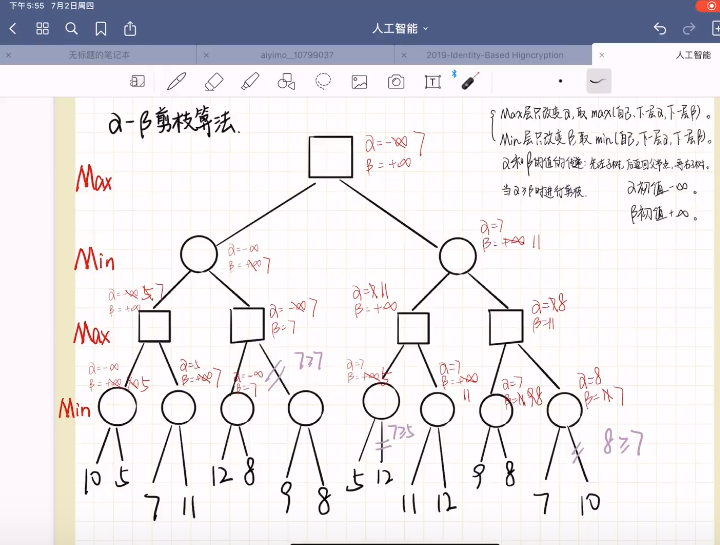 下午5:55 7月2日周四
人工智能
无标题的笔记本
aiyimo__10799037
2019-Identity-Based Higncryption
人工智能
α-β剪枝算法.
Max层只改变α,取 max(自己,下一层α,下一层β)。
Min层只改变β,取 min(自己,下一层α,下一层β)。
α和β的值的传递:
当α≥β时进行剪枝.
α初值-∞。
β初值+∞。
Max
α=-∞ 7
β=+∞
Min
α=-∞
β=+∞ 7
α=7
β=+∞ 11
Max
α=-∞ 5 7
β=+∞
α=-∞ 7
β=7
α=7 11
β=+∞
α=7 8
β=11
7≥7
Min
α=-∞
β=+∞ 10 5
α=5
β=+∞ 7
α=-∞
β=7
α=7
β=+∞ 5
α=7
β=+∞
11
α=7
β=11 9 8
α=8
β=11 7
7≥5
8≥7
10 5
7 11
12 8
9 8
5 12
11 12
9 8
7 10